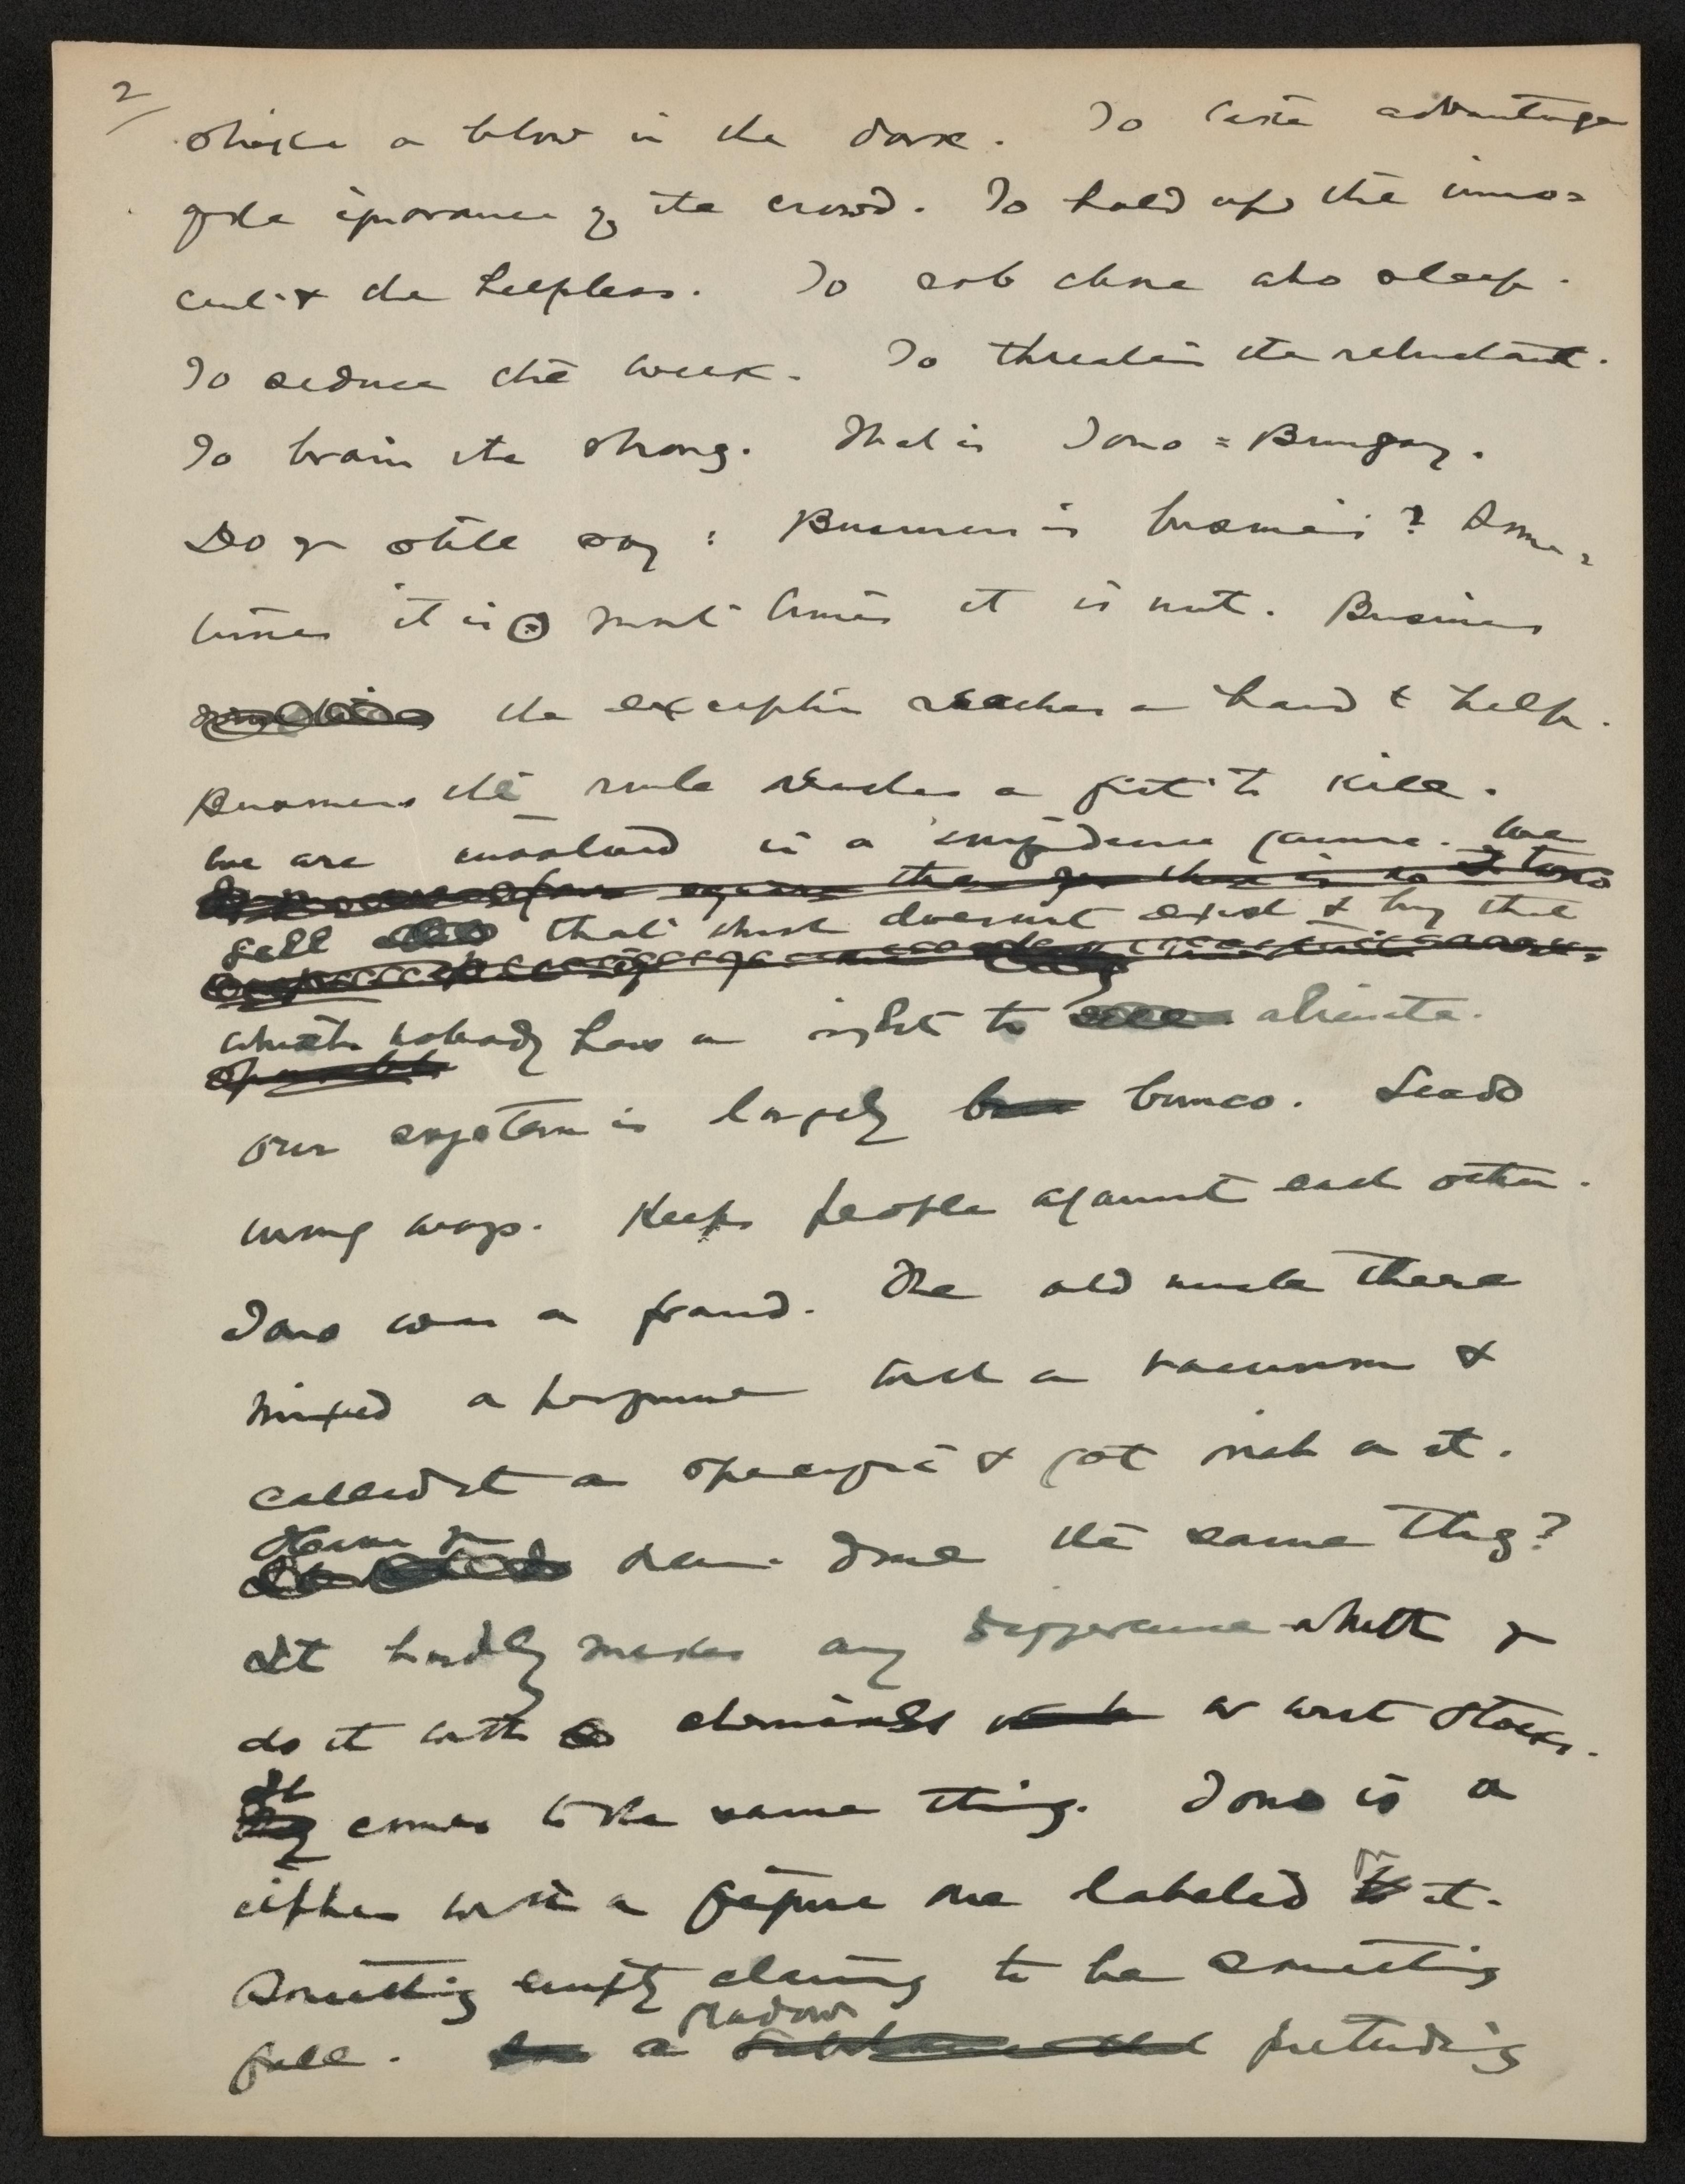 2
strike a blow in the dark. To take advantage
of the ignorance of the crowd. To hold up the inno=
cent & the helpless. To rob those who sleep.
To seduce the weak. To threaten the reluctant.
To brain the strong. That is Tono=Bungay.
Do yr still say: Business is business? Some=
times it is. Most times it is not. Business
the exception reaches a hand to help.
Business the rule reaches a fist to kill.
We are involved in a confidence game. We
sell that which doesnt exist & buy that
which nobody has a right to alienate.
Our system is largely bunco. Leads
wrong ways. Keeps people against each other.
Tono was a fraud. The old uncle there
mixed a perfume with a vacuum &
called it a specific & got rich on it.
Have yr done the same thing?
It hardly makes any difference whether yr
do it with chemicals or with stocks.
It comes to the same thing. Tono is a
cipher with a figure one labeled to it.
Something empty claiming to be something
full. a shadow pretending